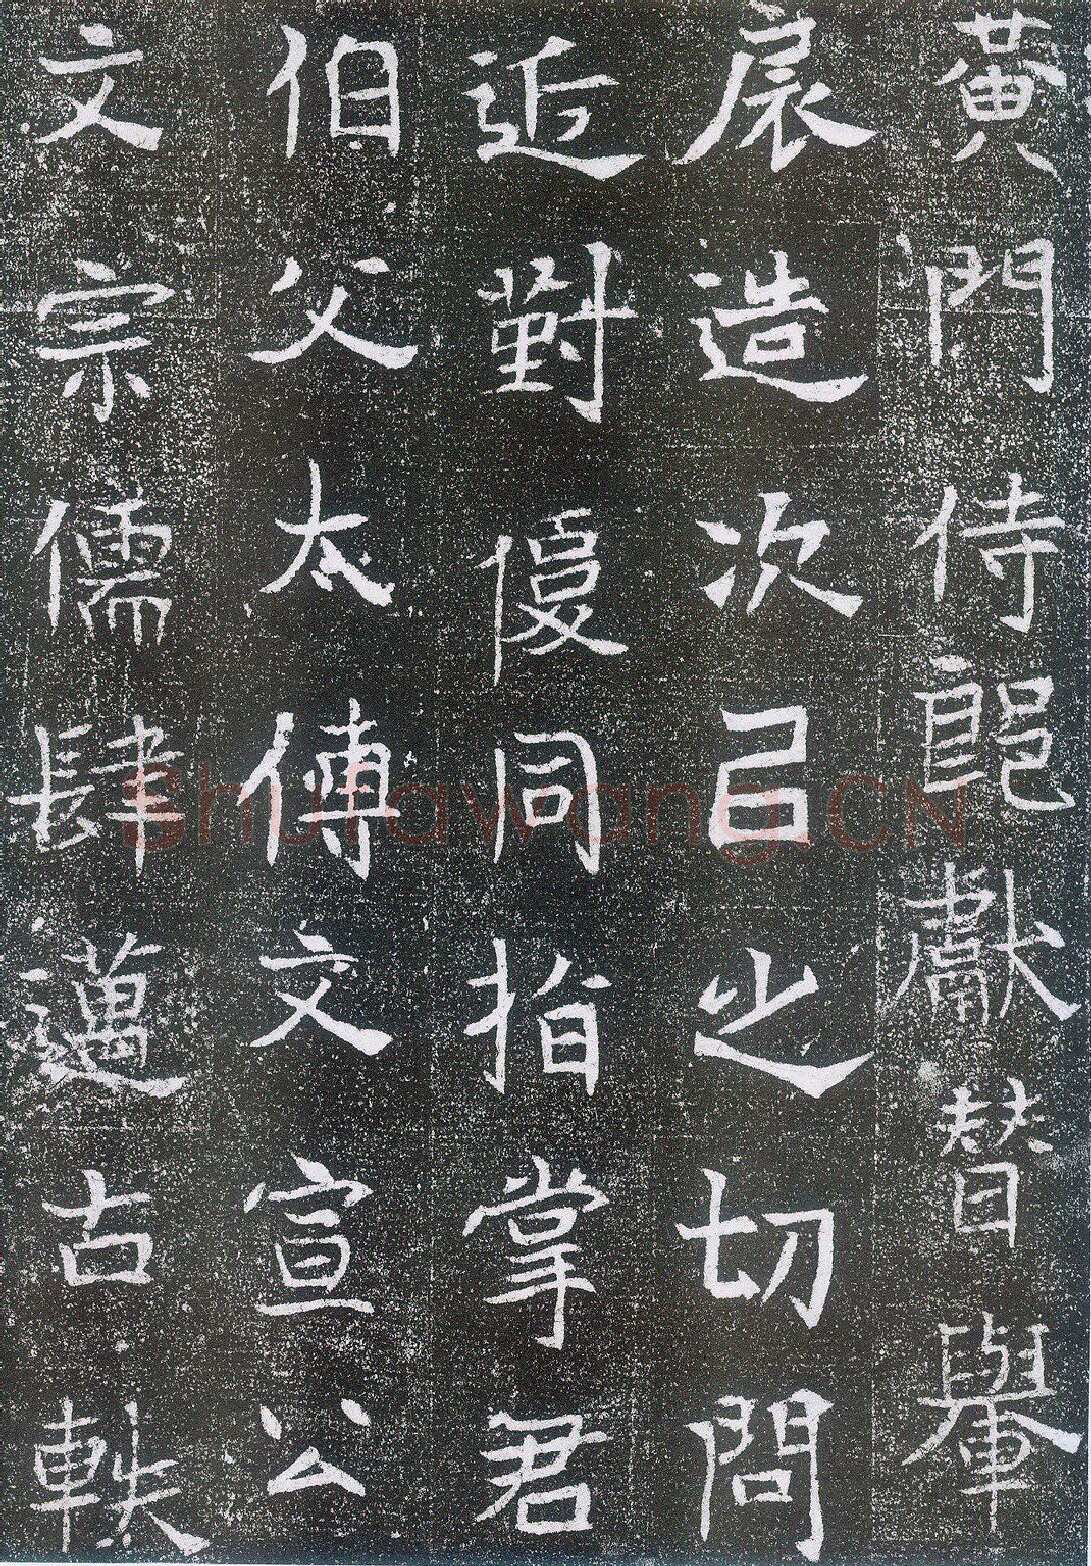 黃門侍郎獻替轝
扆造次㠯之切問
近對優同指掌君
伯父太傅文宣公
文宗儒肆邁古軼
Shufawang.CN